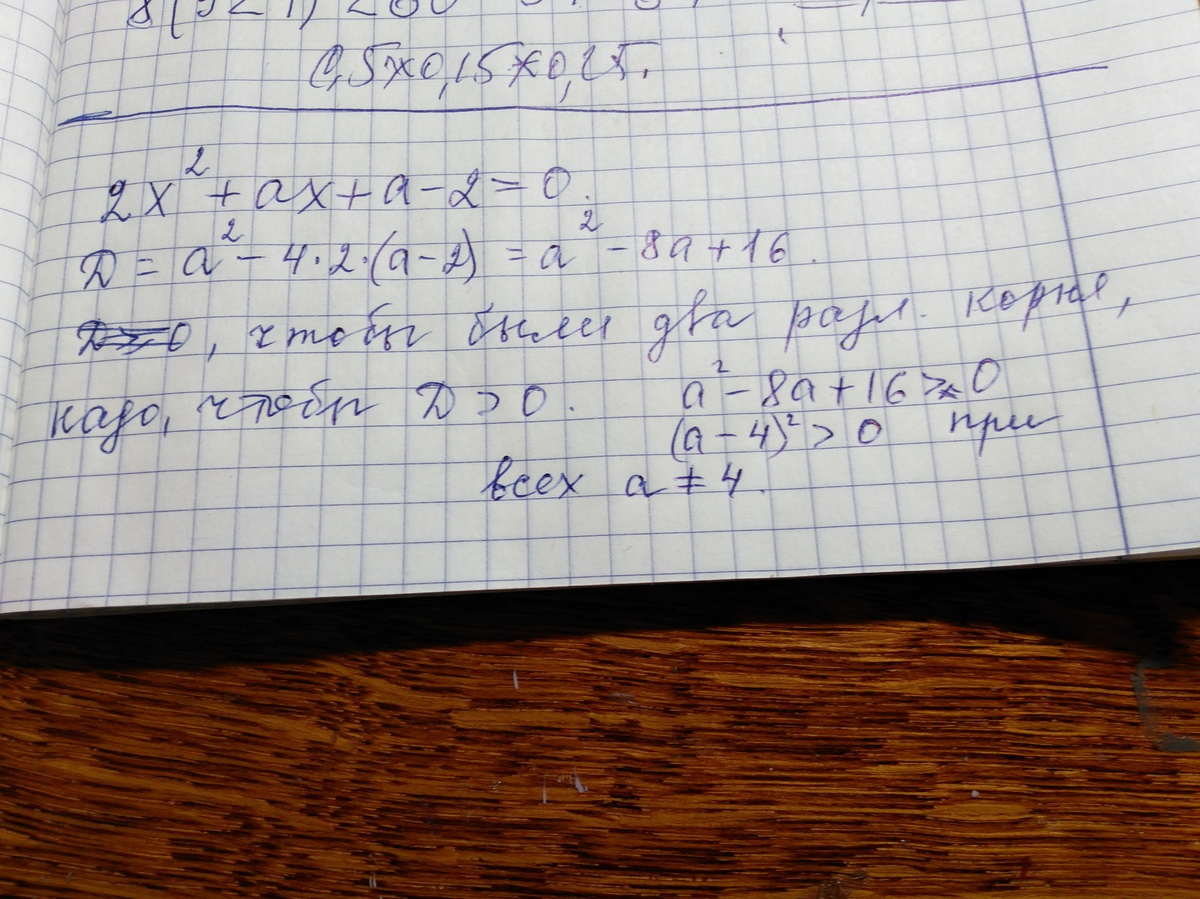 0,5×0,15×0,25.
2x² + ax + a - 2 = 0.
D = a² - 4·2·(a - 2) = a² - 8a + 16.
, чтобы были два разл. корня,
надо, чтобы D > 0. a² - 8a + 16 > 0
(a - 4)² > 0 при
всех a ≠ 4.